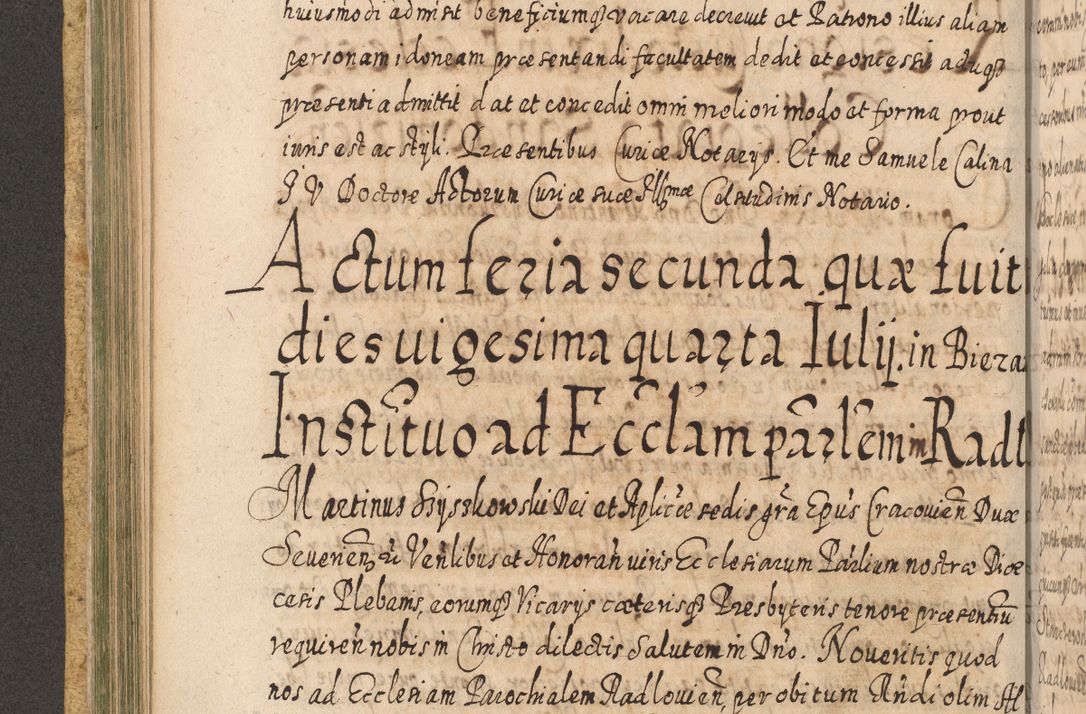 huiusmodi admisit beneficiumq3 vacare decrevit et Patrono illius aliam
personam idoneam præsentandi facultatem dedit et concessit aduq3
præsenti admittit dat et concedit omni meliori modo et forma prout
iuris est ac styli. Præsentibus Curiæ Notarijs. Et me Samuele Calina
I V Doctore Actorum Curiæ suæ Illmæ Celsitudinis Notario.
Actum feria secunda quæ fuit
dies uigesima quarta Iulij. in Bieza
Institutio ad Ecclam parlem in Radl
Martinus Szyszkowski Dei et Aplicæ sedis gra Epus Cracovien Dux
Severien Venlibus et Honoran viris Ecclesiarum Parlium nostræ Diœ
cesis Plebanis, eorumq3 Vicarijs cæterisq3 Presbyteris tenore præsentiu
requiren nobis in Christo dilectis Salutem in Dno. Noveritis quod
nos ad Ecclesiam Parochialem Radlovien, per obitum Andi olim Al